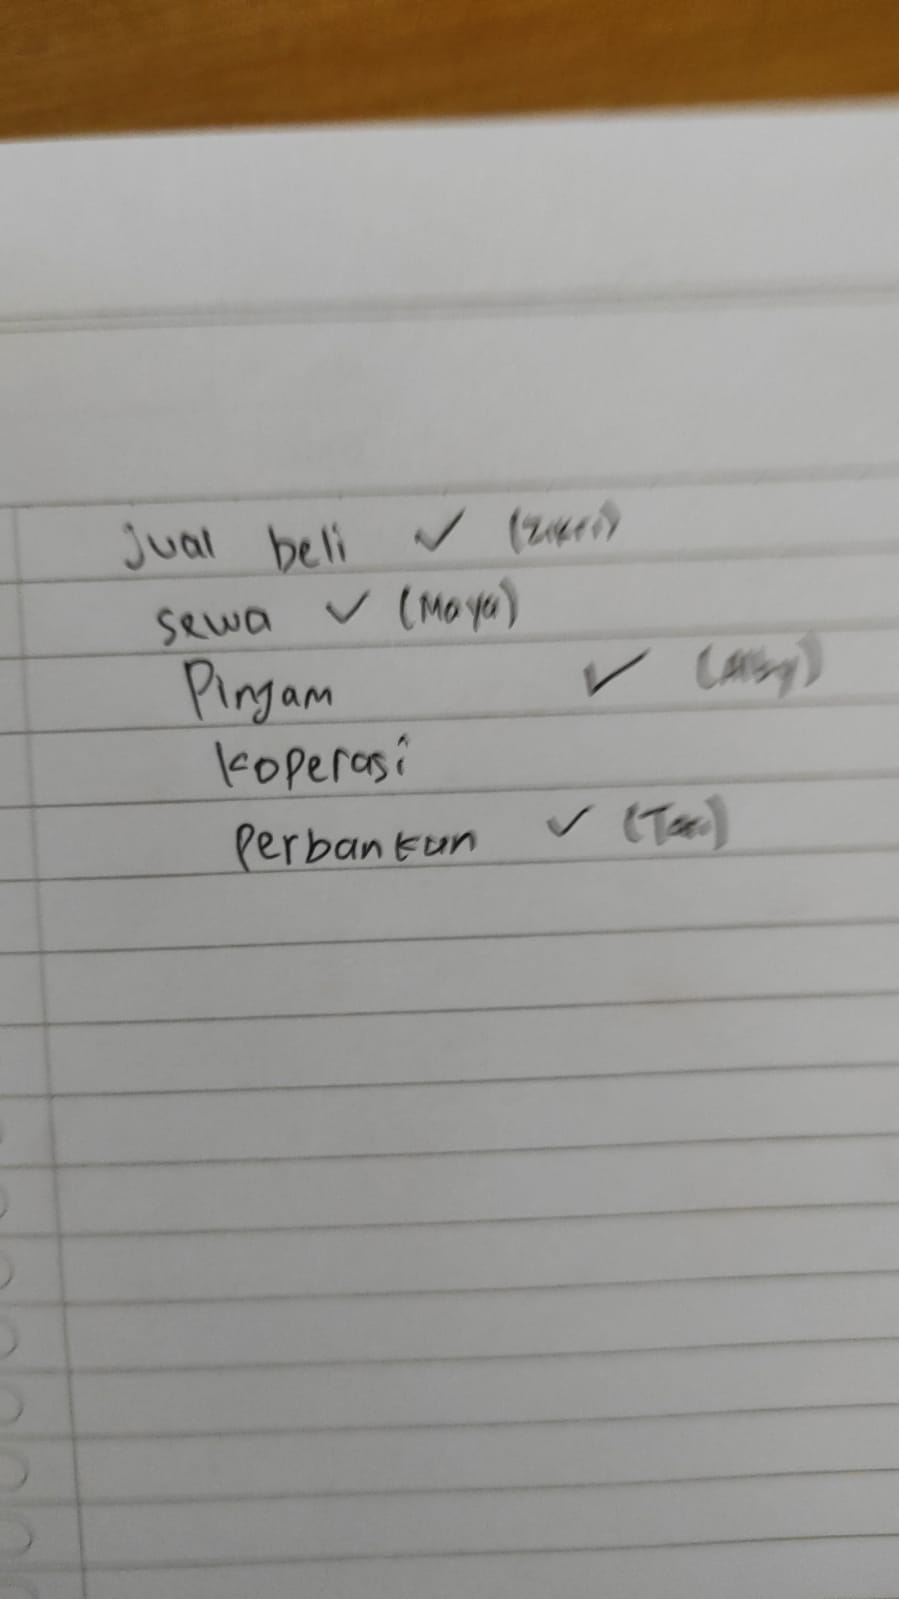 jual beli ✓
sewa ✓ (Maya)
Pinjam ✓
koperasi
Perbankan ✓